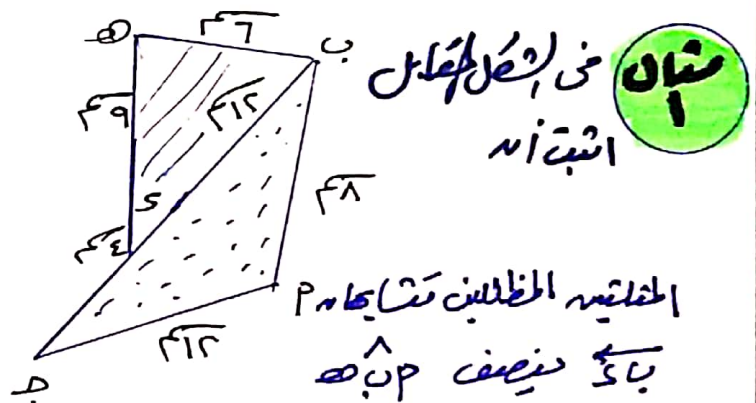 مثال ١
فى الشكل المقابل
اثبت أنه
المثلثين المظللين متشابهان
ب د ينصف م ب هـ
هـ
٦سم
ب
٩سم
١٢سم
د
٤سم
٨سم
م
١٢سم
ج